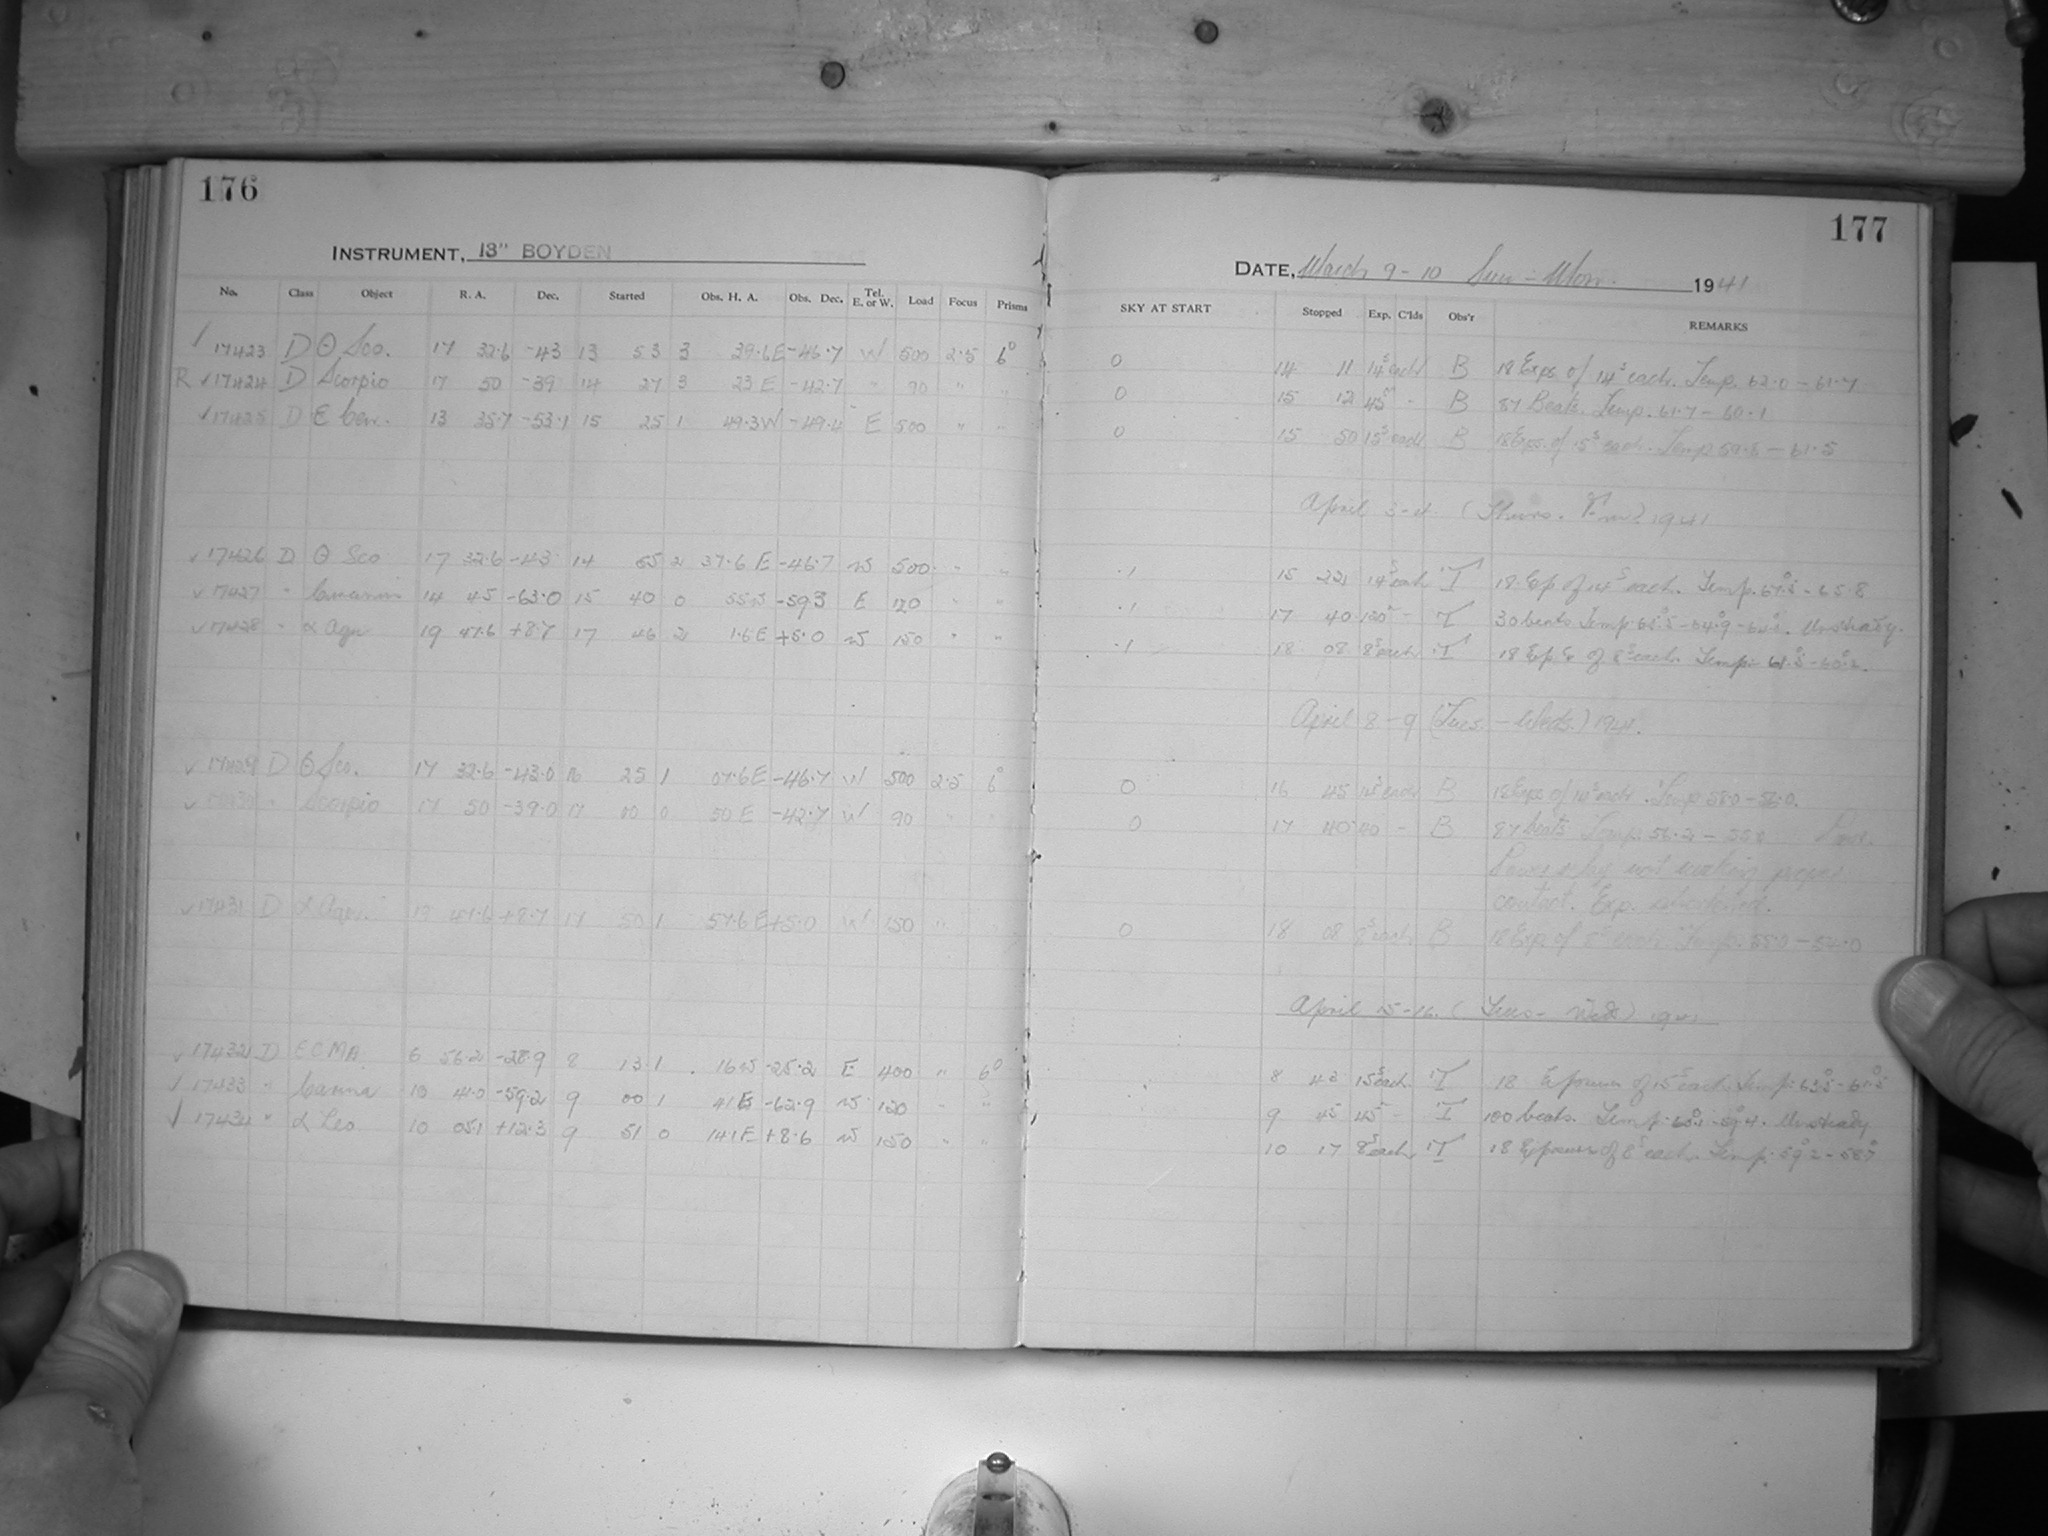 176
INSTRUMENT, 13" BOYDEN
No. Class Object R. A. Dec. Started Obs. H. A. Obs. Dec. Tel. E. or W. Load Focus Prisms
17423 D Θ Sco. 17 32.6 -43 13 53 3 39.6 E -46.7 W 500 2.5 6°
R ✓17424 D Scorpio 17 50 -39 14 27 3 23 E -42.7 " 90 " "
✓17425 D E Cen. 13 35.7 -53.1 15 25 1 49.3 W -49.4 E 500 " "
✓17426 D Θ Sco 17 32.6 -43 14 55 2 37.6 E -46.7 W 500 " "
✓17427 " 14 45 -63.0 15 40 0 55 W -59.3 E 120 " "
✓17428 " α Aql 19 47.6 +8.7 17 46 2 1.6 E +5.0 W 150 " "
✓17429 D Θ Sco. 17 32.6 -43.0 16 25 1 07.6 E -46.7 W 500 2.5 6°
✓ Scorpio 17 50 -39.0 17 00 0 50 E -42.7 W 90
✓17431 D 19 47.6 +8.7 17 50 1 57.6 E +5.0 W 150 "
✓17432 D E C MA 6 56.2 -28.9 8 13 1 16 W -25.2 E 400 " 6°
✓17433 " Carina 10 41.0 -59.2 9 00 1 41 E -62.9 W 120 " "
✓17434 " α Leo 10 05.1 +12.3 9 51 0 14.1 E +8.6 W 150 " "
177
DATE, March 9-10 Sun - Mon. 1941
SKY AT START Stopped Exp. C'lds Obs'r REMARKS
0 14 11 14s each B 18 Exps of 14s each. Temp. 62.0 - 61.7
0 15 12 45 - B 87 Beats. Temp. 61.7 - 60.1
0 15 50 15s each B 18 Exps. of 15s each. Temp 59.8 - 61.5
April 3-4. (Thurs. Fri) 1941
.1 15 22 14s each T 18 Exp of 14s each. Temp. 67.5 - 65.8
.1 17 40 120 - T 30 beats Temp. Unsteady.
.1 18 08 8s each T 18 Exps of 8s each. Temp. 61.5 - 60.2.
April 8-9 (Tues. - Weds.) 1941.
0 16 45 14s each B 18 Exps of 14s each. Temp 58.0 - 56.0.
0 17 40 40 - B 87 beats Temp. 56.2 -
Power relay not making proper
contact. Exp.
0 18 08 8s each B 18 Exp of 8s each. Temp. 55.0 - 54.0
April 15-16. (Tues - Wed) 1941
8 43 15s each T 18 Exposures of 15s each. Temp. 63.5 - 61.5
9 45 45 - T 100 beats. Temp. Unsteady
10 17 8s each T 18 Exposures of 8s each. Temp. 59.2 - 58.7